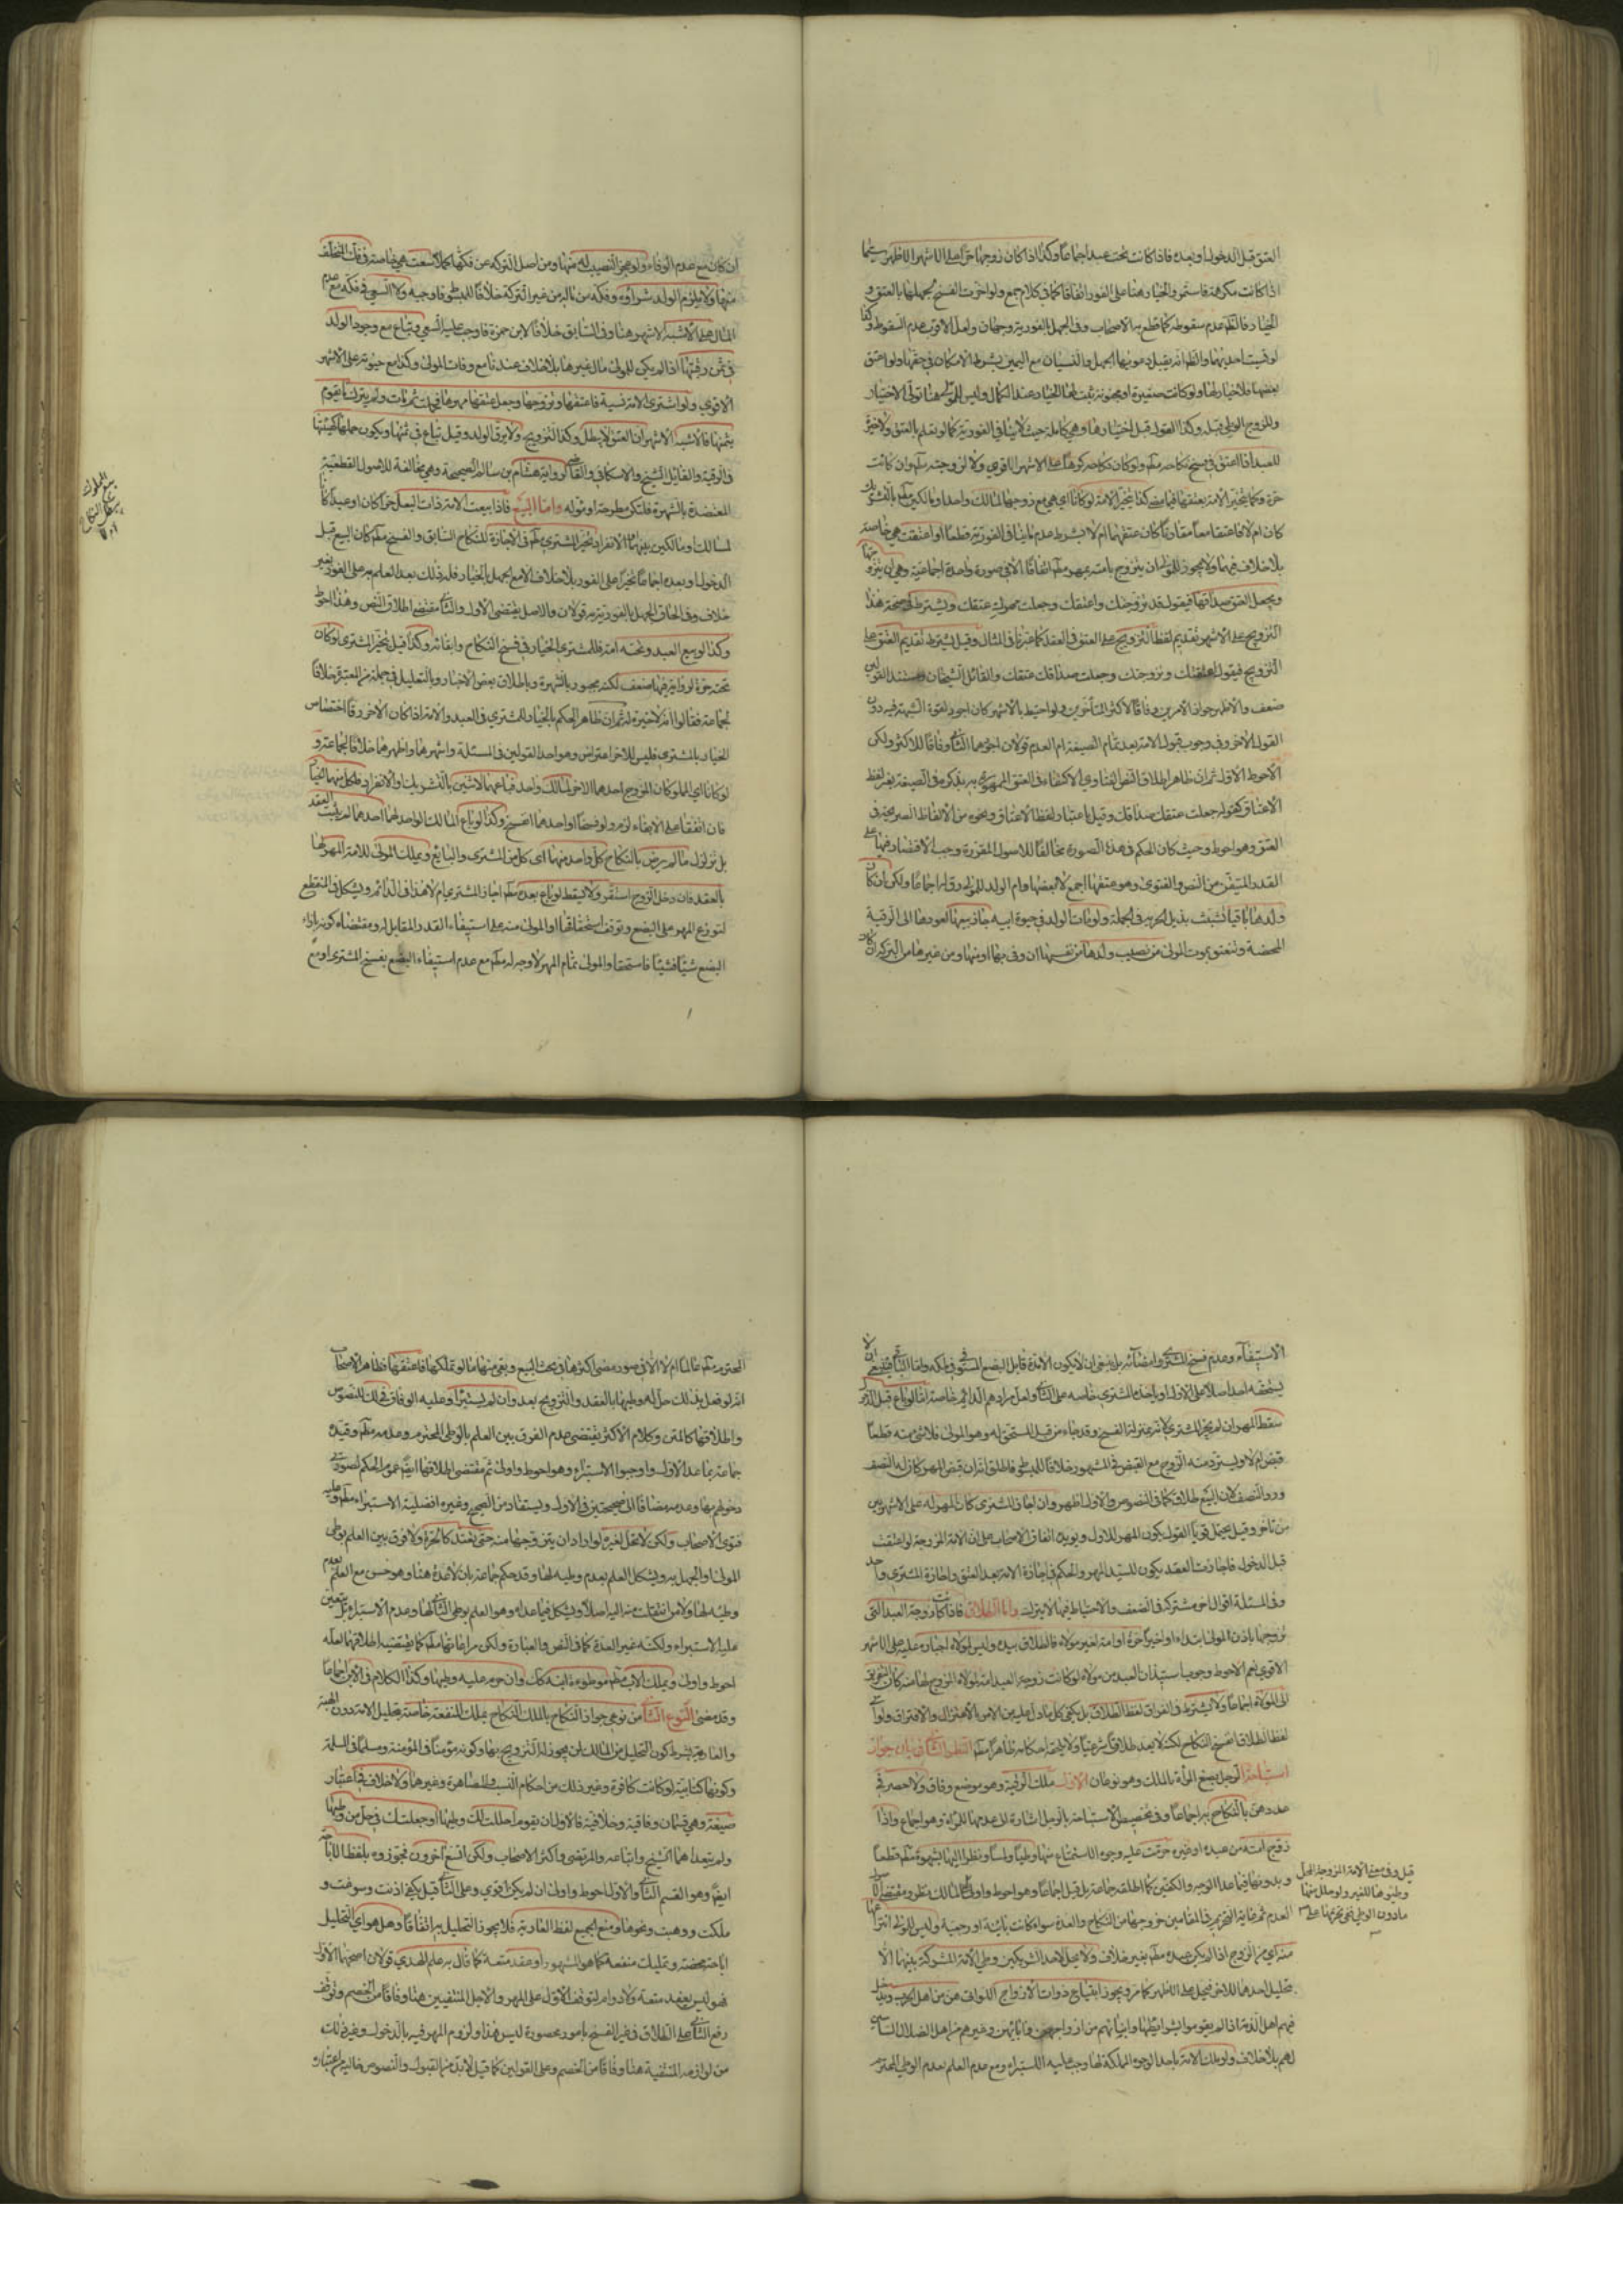 العتق قبل الدخول او بعده فاذا كانت تحت عبد اجماعا وكذا اذا كان زوجها حرا على الاشهر الاظهر سيما
اذا كانت مكرهة فاستمر والخيار هنا على الفور اتفاقا كما في كلام جمع ولو اخرت الفسخ لجهلها بالعتق و
الخيار فالظ عدم سقوطه كما قطع به الاصحاب وفي الجهل بالفورية وجهان ولعل الاقرب عدم السقوط وكذا
لو نسيت احديهما والظ انه يقبل دعويها الجهل والنسيان مع اليمين بشرط الامكان في حقها ولو اعتق
بعضها فلا خيار لها ولو كانت صغيرة او مجنونة ثبت لها الخيار عند الكمال وليس للمولى هنا تولى الاختيار
وللزوج الوطي قبله وكذا القول قبل اختيارها وهي كاملة حيث لا ينافي الفورية كما لو لم تعلم بالعتق ولا خيرة
للعبد اذا اعتق في فسخ نكاحه مط ولو كان نكاحه كرها على الاشهر الاقوى ولا لزوجته مط وان كانت
حرة وكما تخير الامة بعتقها فيما مضى كذا تخير الامة لو كانا اي هي مع زوجها لمالك واحد او مالكين مط بالتشريك
كان ام لا فاعتقا معا مقارنا كان عتقهما ام لا بشرط عدم المنافي الفورية قطعا او اعتقت هي خاصة
بلا خلاف فيهما ولا يجوز للمولى ان يتزوج بامته بمهر مط اتفاقا الا في صورة واحدة اجماعية وهي ان يتزوجها
ويجعل العتق صداقها فيقول قد تزوجتك واعتقتك وجعلت مهرك عتقك ويشترط في صحة هذا
التزويج على الاشهر تقديم لفظ التزويج على العتق في العقد كما عبرنا في المثال وقيل يشترط تقديم العتق على
التزويج فيقول اعتقتك وتزوجتك وجعلت صداقك عتقك والقائل الشيخان ومستند القولين
ضعف والاظهر جواز الامرين وفاقا لاكثر المتأخرين ولو احتيط بالاشهر كان اجود لقوة الشبهة فيه دون
القول الاخر وفي وجوب قبول الامة بعد تمام الصيغة ام العدم قولان اجودهما الثاني وفاقا للاكثر ولكن
الاحوط الاول ثم ان ظاهر اطلاق النص الفتاوي الاكتفاء في العتق الممهور به بذكره في الصيغة بغير لفظ
الاعتاق كقوله جعلت عتقك صداقك وقيل باعتبار لفظ الاعتاق ونحوه من الالفاظ الصريحة في
العتق وهو احوط وحيث كان الحكم في هذه الصورة مخالفا للاصول المقررة وجب الاقتصار فيها على
القدر المتيقن من النص والفتوى وهو عتقها اجمع لا بعضها وام الولد للمولى رق اجماعا ولكن ان كان
ولدها باقيا تشبث بذيل الحرية في الجملة ولو مات الولد في حيوة ابيه جاز بيعها لعودها الى الرقية
المحضة وتنعتق بموت المولى من نصيب ولدها من نفسها ان وفي بها او منها ومن غيرها من التركة ان كان
ان كان مع عدم الوفاء ولو عجز النصيب له منها ومن اصل التركة عن فكها كملا سعت هي خاصة في فك المتخلف
منها ولا يلزم الولد شراؤه وفكه من ماله من غير التركة خلافا للمبسوط فاوجبه ولا السعي في فكه مع عدم
المال على الاشبه الاشهر هنا وفي السابق خلافا لابن حمزة فاوجب عليه السعي وتباع مع وجود الولد
في ثمن رقبتها اذا لم يكن للمولى مال غيرها بلا خلاف عندنا مع وفات المولى وكذا مع حيوته على الاشهر
الاقوى ولو اشترى الامة نسية فاعتقها وتزوجها وجعل عتقها مهرها فحملت ثم مات ولم يترك ما يقوم
بثمنها فالاشبه الاشهر ان العتق لا يبطل وكذا التزويج ولا يرق الولد وقيل تباع في ثمنها ويكون حملها كهيئتها
في الرقية والقائل الشيخ والاسكافي والقاضي لرواية هشام بن سالم الصحيحة وهي مخالفة للاصول القطعية
المعتضدة بالشهرة فلتكن مطروحة او مؤله واما البيع فاذا بيعت الامة ذات البعل حرا كان او عبدا كانا
لمالك او مالكين بينهما الانفراد تخير المشتري مط في الاجازة للنكاح السابق والفسخ مط كان البيع قبل
الدخول او بعده اجماعا تخيرا على الفور بلا خلاف الا مع الجهل بالخيار فله ذلك بعد العلم به على الفور بغير
خلاف وفي الحاق الجهل بالفورية به قولان والاصل يقتضي الاول والثاني مقتضى اطلاق النص وهذا احوط
وكذا لو بيع العبد وتحته امة فللمشتري الخيار في فسخ النكاح وابقائه وكذا قيل يتخير المشتري لو كان
تحته حرة لرواية فيها ضعف لكنه مجبور بالشهرة وباطلاق بعض الاخبار وبالتعليل في جملة من المعتبرة خلافا
لجماعة فقالوا انه لا خيرة له ثم ان ظاهر الحكم بالخيار للمشتري في العبد والامة اذا كان الاخر رقا اختصاص
الخيار بالمشتري فليس للاخر اعتراض وهو احد القولين في المسئلة واشهرهما واظهرهما خلافا لجماعة و
لو كانا اي المملوكان المزوج احدهما الاخر لمالك واحد فباعهما لاثنين بالتشريك او الانفراد فلكل منهما الخيار
فان اتفقا على الابقاء لزم ولو فسخا او احدهما انفسخ وكذا لو باع المالك الواحد لهما احدهما لم يثبت العقد
بل تزلزل ما لم يرض بالنكاح كل واحد منهما اي كل من المشتري والبايع ويملك المولى للامة المهر لها
بالعقد فان دخل الزوج استقر ولا يسقط لو باع بعده مط اجاز المشتري ام لا هذا في الدائم ويشكل في المنقطع
لتوزع المهر على البضع وتوقف استحقاقها او المولى منه على استيفاء القدر المقابل له ومقتضاه كونه بازاء
البضع شيئا فشيئا فاستحقاق المولى تمام المهر لا وجه له مط مع عدم استيفاء البضع بفسخ المشتري او مع
بيع المملوك
الاستيفاء وعدم فسخ المشتري وامضائه بل ينبغي ان لا يكون الا بقدر قابل البضع المستوفى في ملكه واما الباقي فينبغي ان لا
يستحقه احد اصلا على الاول او ياخذه المشتري خاصة على الثاني ولعل مرادهم الدائم خاصة اما لو باع قبل الدخول
سقط المهر ان لم يجز المشتري لانه بمنزلة الفسخ وقد جاء من قبل المستحق له وهو المولى فلا شئ منه قطعا
قبض ام لا ويسترد منه الزوج مع القبض في المشهور خلافا للمبسوط فاطلق انه ان قبض المهر كان له النصف
ورد النصف لان البيع طلاق كما في النصوص والاول اظهر وان اجاز المشتري كان المهر له على الاشهر بين
من تأخر وقيل يحتمل قويا القول بكون المهر للاول ويؤيده اتفاق الاصحاب على ان الامة المزوجة لو اعتقت
قبل الدخول فاجازت العقد يكون للسيد المهر والحكم في اجازة الامة بعد العتق واجازة المشتري واحد
وفي المسئلة اقوال اخر مشتركة في الضعف والاحتياط فيها لا يترك واما الطلاق فاذا كانت زوجة العبد التي
تزوجها باذن المولى ابتداء او اخيرا حرة او امة لغير مولاه فالطلاق بيده وليس لمولاه اجباره عليه على الاشهر
الاقوى نعم الاحوط وجوبا استيذان العبد من مولاه لو كانت زوجة العبد امة لمولاه المزوج لها منه كان التفريق
الى المولى اجماعا ولا يشترط في الفراق لفظ الطلاق بل يكفي كل ما دل عليه من الامر بالاعتزال والافتراق ولو اتى
لفظ الطلاق انفسخ النكاح لكنه لا يعد طلاقا شرعيا ولا يلحقه احكامه ظاهرا مط النظر الثاني في بيان جواز
استباحة الرجل بضع المرأة بالملك وهو نوعان الاول ملك الرقبة وهو موضع وفاق ولا حصر في
عددهن بالنكاح به اجماعا وفي تخصيص الاستباحة بالرجل اشارة الى عدمها للمرأة وهو اجماع واذا
زوج امته من عبده او غيره حرمت عليه وجوه الاستمتاع منها وطيا ولمسا ونظرا اليها بشهوة مط قطعا
وبدونها فيما عدا الوجه والكفين كما اطلقه جماعة بل قيل اجماعا وهو احوط واولى
العدم ثم غاية التحريم في المقامين خروجها من النكاح والعدة سواء كانت باينة او رجعية وليس للمولى انتزاعها
منه اي من الزوج اذا لم يكن عبده مط بغير خلاف ولا يحل لاحد الشريكين وطي الامة المشتركة بينهما الا
بتحليل احدهما للاخر فيحل على الاظهر كما مر ويجوز ابتياع ذوات الازواج اللواتي هن من اهل الحرب ويدخل
فيهم اهل الذمة اذا لم يقوموا بشرايطها وابنائهم من ازواجهن وابائهن وغيرهم من اهل الضلال السابي
لهم بلا خلاف ولو ملك الامة باحد الوجوه المملكة لها وجب عليه الاستبراء ومع عدم العلم بعدم الوطي المحترم
قيل وفي معنى الامة المزوجة المحلل
وطئوها للغير ولو حلل منها
ما دون الوطي ففي تحريمها على
المحترم مط عالما ام لا الا في صور مضى اكثرها في بحث البيع وبقي منها ما لو تملكها فاعتقها فظاهر الاصحاب
انه لو فعل بذلك حل له وطيها بالعقد والتزويج بعد وان لم يستبرأ وعليه الوفاق في ذلك للنصوص
واطلاقها كالمتن وكلام الاكثر يقتضي عدم الفرق بين العلم بالوطي المحترم وعدمه مط وقيده
جماعة بما عدا الاول واوجبوا الاستبراء وهو احوط واولى ثم مقتضى اطلاقها ايض عموم الحكم لصورتي
دخولهم بها وعدمه مضافا الى صحيحتين في الاول ويستفاد من الصحيح وغيره افضلية الاستبراء مط وعليه
فتوى الاصحاب ولكن لا تحل لغيره لو اراد ان يتزوجها منه حتى تعتد كالحرة ولا فرق بين العلم بوطي
المولى او الجهل به ويشكل العلم بعدم وطيه لها وقد حكم جماعة بان لا عدة هنا وهو حسن مع العلم بعدم
وطيه لها ولا من انتقلت منه اليه اصلا ويشكل فيما عداه وهو العلم بوطي الثاني لها وعدم الاستبراء بل يتعين
عليه الاستبراء ولكنه غير العدة كما في النص والعبارة ولكن مراعاتها مط كما يقتضيه اطلاقهما لعله
احوط واولى ويملك الاب مط موطوءة ابنه كك وان حرم عليه وطيها وكذا الكلام في الابن اجماعا
وقد مضى النوع الثاني من نوعي جواز النكاح بالملك النكاح بملك المنفعة خاصة تحليل الامة دون الهبة
والعارية بشرط كون التحليل من المالك لمن يجوز له التزويج بها وكونه مؤمنا في المؤمنة ومسلما في المسلمة
وكونها كتابية لو كانت كافرة وغير ذلك من احكام النسب والمصاهرة وغيرها ولا خلاف في اعتبار
صيغة وهي قسمان وفاقية وخلافية فالاول ان يقول احللت لك وطيها او جعلتك في حل من وطيها
ولم يتعداهما الشيخ واتباعه والمرتضى واكثر الاصحاب ولكن اتسع آخرون فجوزوه بلفظ الاباحة
ايض وهو القسم الثاني والاول احوط واولى ان لم يكن اقوى وعلى الثاني قيل يكفي اذنت وسوغت و
ملكت ووهبت ونحوها ومنع الجميع لفظ العارية فلا يجوز التحليل به اتفاقا وهل هو اي التحليل
اباحة محضة وتمليك منفعة كما هو المشهور او عقد متعة كما قال به علم الهدى قولان اصحهما الاول
فهو ليس بعقد متعة ولا دوام لتوقف الاول على المهر والاجل المنتفيين هنا وفاقا من الخصم وتوقف
رفع الثاني على الطلاق في غير الفسخ بامور محصورة ليس هذا ولزوم المهر فيه بالدخول وغير ذلك
من لوازمه المنتفية هنا وفاقا من الخصم وعلى القولين كما قيل لا بد من القبول والنصوص خالية من اعتباره